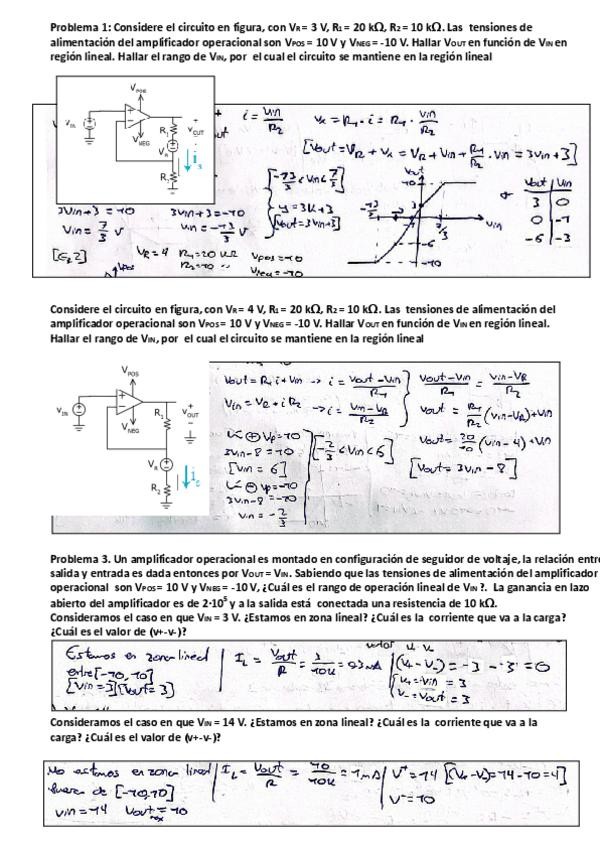 Problema 1: Considere el circuito en figura, con VR = 3 V, R1 = 20 kΩ, R2 = 10 kΩ. Las tensiones de
alimentación del amplificador operacional son VPOS = 10 V y VNEG = -10 V. Hallar VOUT en función de VIN en
región lineal. Hallar el rango de VIN, por el cual el circuito se mantiene en la región lineal
VPOS
VIN
VNEG
R1
VR
R2
+
VOUT
-
i = Vin/R2
Vx = R1 · i = R1 · Vin/R2
[Vout = VR + Vx = VR + Vin + R1/R2 · Vin = 3Vin + 3]
[-13/3 < Vin < 7/3]
y = 3x + 3
[Vout = 3Vin + 3]
3Vin + 3 = 10
Vin = 7/3 V
3Vin + 3 = -10
Vin = -13/3 V
Vout
10
-13/3
7/3
Vin
-6
-10
Vout Vin
3 0
0 -1
-6 -3
[Ej 2]
VR = 4 R1 = 20 kΩ
R2 = 10
Vpos = 10
Vneg = -10
Considere el circuito en figura, con VR = 4 V, R1 = 20 kΩ, R2 = 10 kΩ. Las tensiones de alimentación del
amplificador operacional son VPOS = 10 V y VNEG = -10 V. Hallar VOUT en función de VIN en región lineal.
Hallar el rango de VIN, por el cual el circuito se mantiene en la región lineal
VPOS
VIN
VNEG
R1
VR
R2
+
VOUT
-
Vout = R1 i + Vin -> i = Vout - Vin / R1
Vin = VR + i R2 -> i = Vin - VR / R2
Vout - Vin / R1 = Vin - VR / R2
Vout = R1/R2 (Vin - VR) + Vin
Vout = 20/10 (Vin - 4) + Vin
[Vout = 3Vin - 8]
Vp = 10
3Vin - 8 = 10
[Vin = 6]
Vp = -10
3Vin - 8 = -10
Vin = -2/3
[-2/3 < Vin < 6]
Problema 3. Un amplificador operacional es montado en configuración de seguidor de voltaje, la relación entre
salida y entrada es dada entonces por VOUT = VIN. Sabiendo que las tensiones de alimentación del amplificador
operacional son VPOS = 10 V y VNEG = -10 V, ¿Cuál es el rango de operación lineal de VIN ?. La ganancia en lazo
abierto del amplificador es de 2·10⁵ y a la salida está conectada una resistencia de 10 kΩ.
Consideramos el caso en que VIN = 3 V. ¿Estamos en zona lineal? ¿Cuál es la corriente que va a la carga?
¿Cuál es el valor de (v+-v-)?
Estamos en zona lineal
entre [-10, 10]
[Vin = 3] [Vout = 3]
IL = Vout/R = 3/10k = 0.3 mA
(V+ - V-) = -3 - 3 = 0
V+ = Vin = 3
V- = Vout = 3
Consideramos el caso en que VIN = 14 V. ¿Estamos en zona lineal? ¿Cuál es la corriente que va a la
carga? ¿Cuál es el valor de (v+-v-)?
No estamos en zona lineal
fuera de [-10, 10]
Vin = 14 Vout max = 10
IL = Vout/R = 10/10k = 1 mA
V+ = 14 [(V+ - V-) = 14 - 10 = 4]
V- = 10